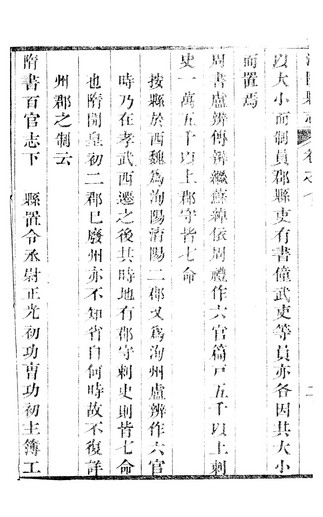 以大小而制員郡縣吏有書僮武吏等員亦各因其大小
而置焉
周書盧辨傳辯繼蘇綽依周禮作六官篇戸五千以上刺
史一萬五千以上郡守皆七命
按縣於西魏為洵陽淯陽二郡又為洵州盧辨作六官
時乃在孝武西遷之後其時地有郡守刺史則皆七命
也隋開皇初二郡巳廢州亦不知省自何時故不復詳
州郡之制云
隋書百官志下　縣置令丞尉正光初功曹功初主簿工